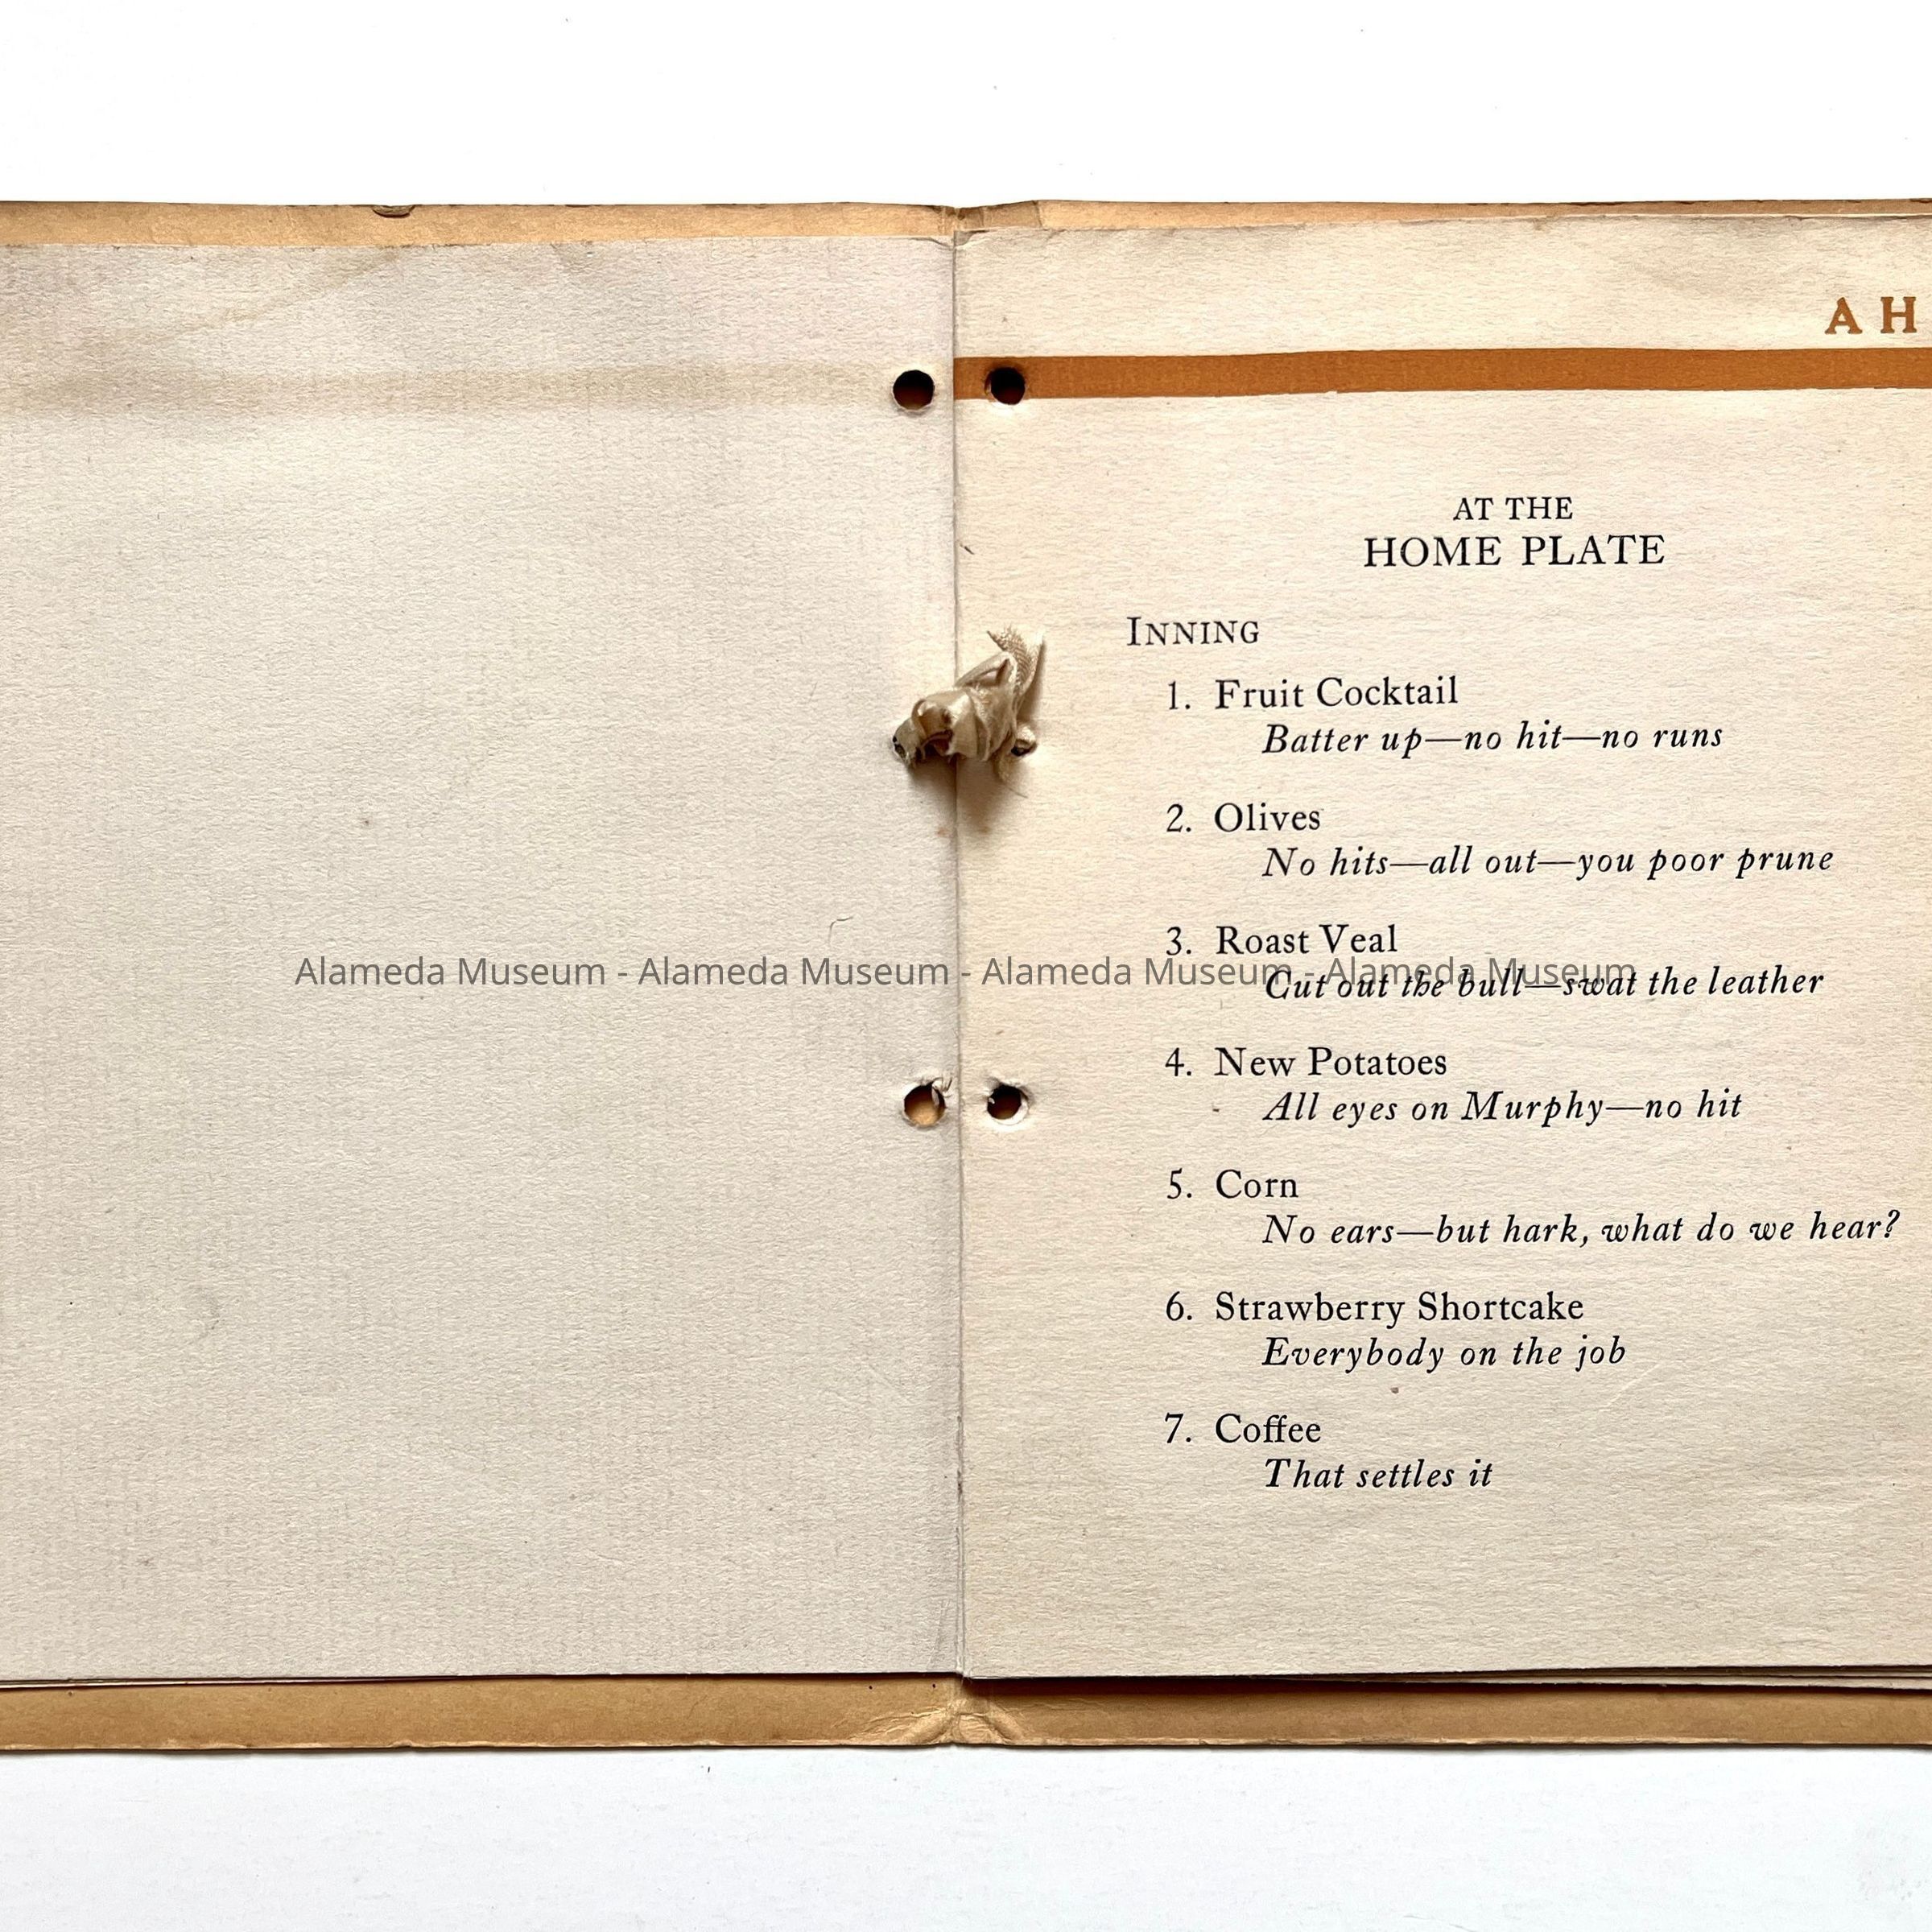 A H
AT THE
HOME PLATE
INNING
1. Fruit Cocktail
Batter up—no hit—no runs
2. Olives
No hits—all out—you poor prune
3. Roast Veal
Alameda Museum - Alameda Museum - Alameda Museum - Alameda Museum
Cut out the bull—swat the leather
4. New Potatoes
All eyes on Murphy—no hit
5. Corn
No ears—but hark, what do we hear?
6. Strawberry Shortcake
Everybody on the job
7. Coffee
That settles it